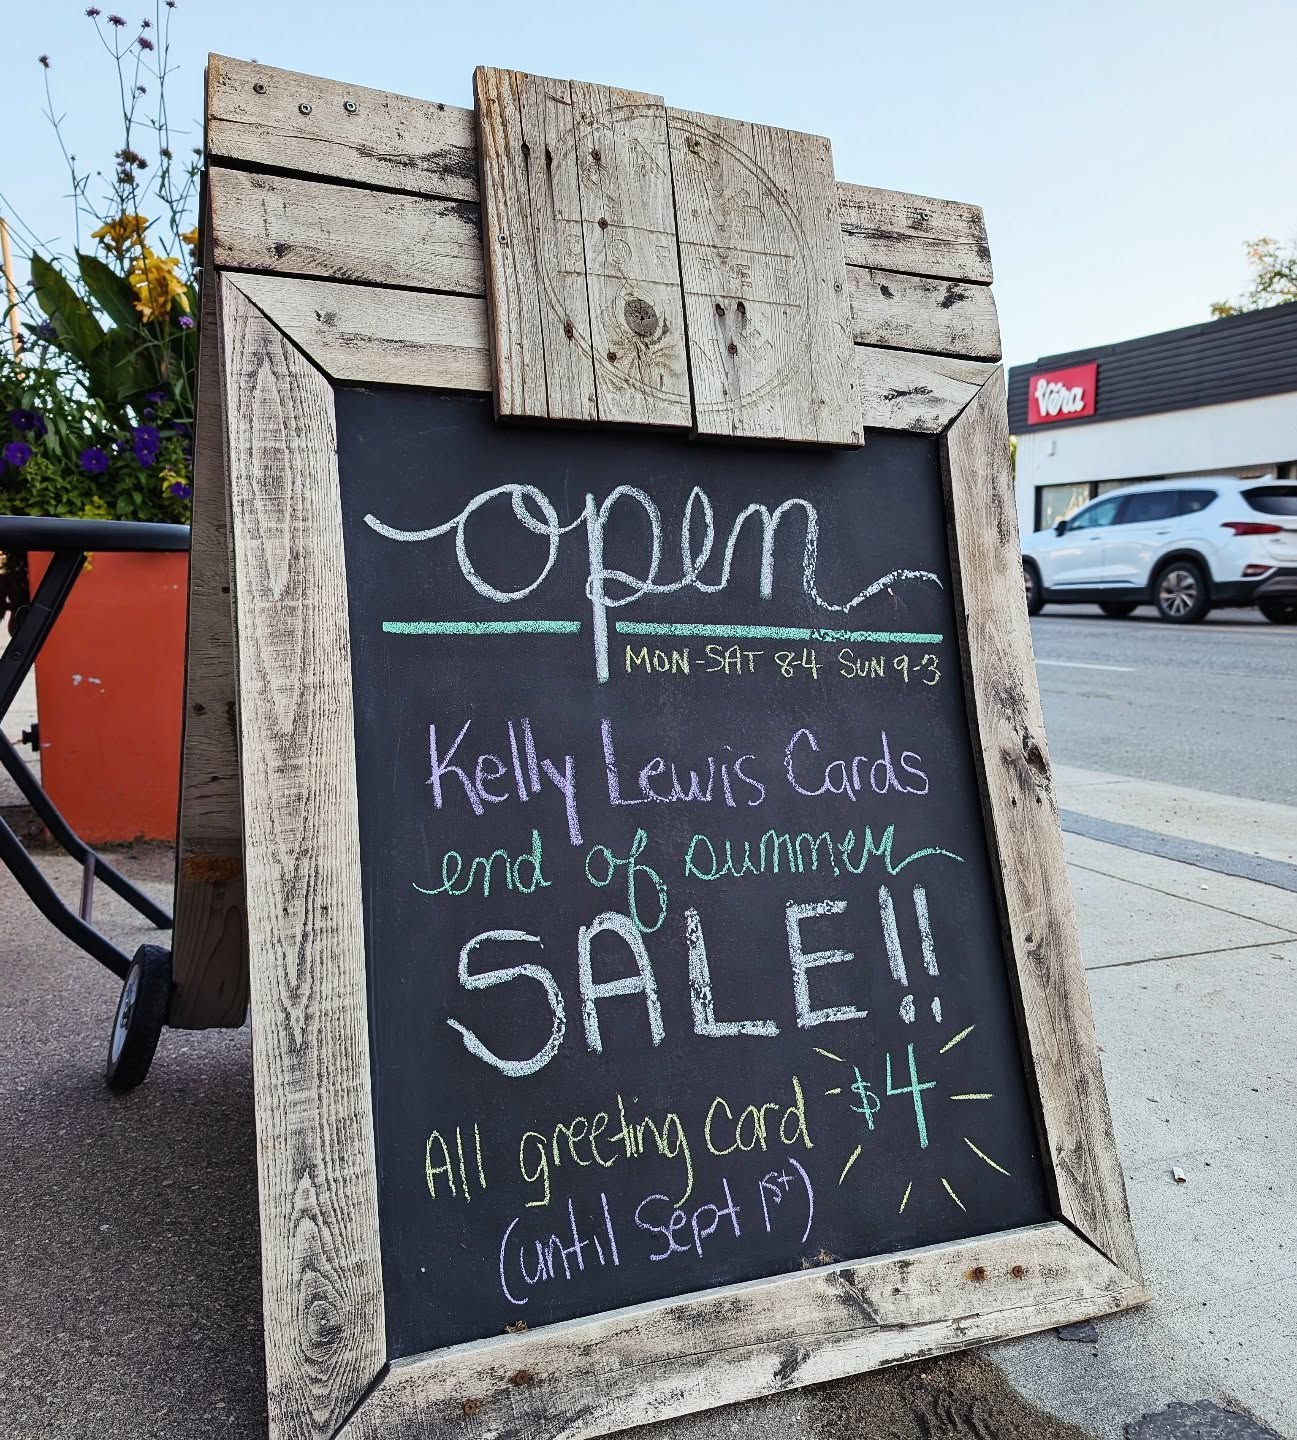 open
MON-SAT 8-4 SUN 9-3
Kelly Lewis Cards
end of summer
SALE!!
All greeting card $4
(until Sept 1st)
Vera